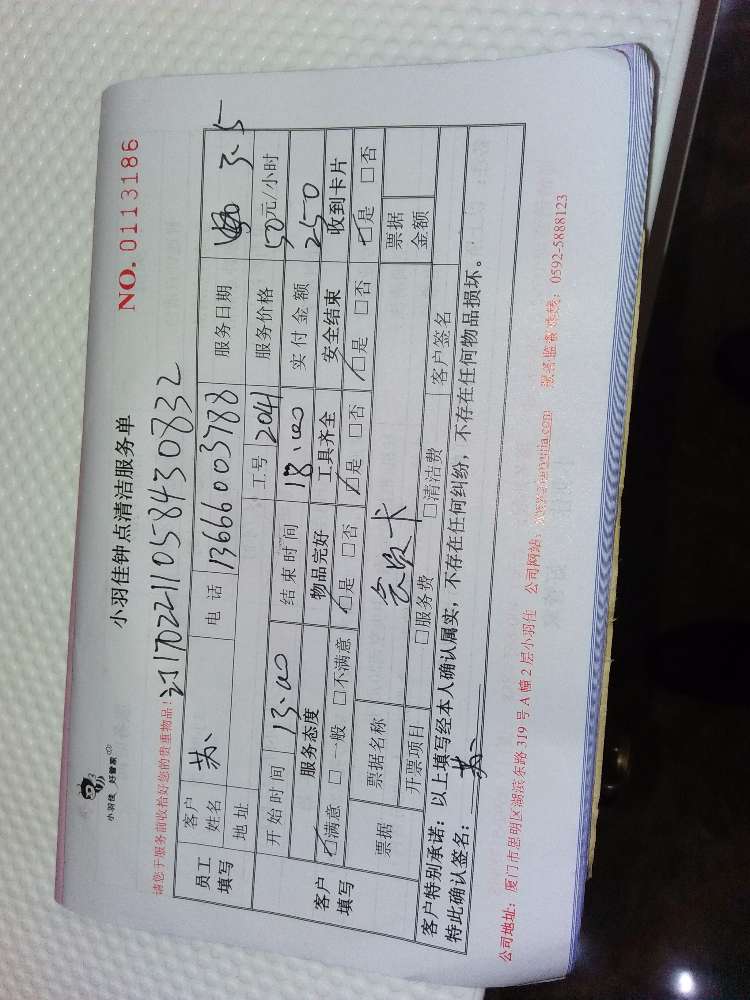 小羽佳 好管家
小羽佳钟点清洁服务单
NO. 0113186
请您于服务前收拾好您的贵重物品!
订170221105843083 2
员工填写 客户姓名 苏 电话 13666003788 服务日期 3.5
地址 工号 2041 服务价格 50元/小时
开始时间 13:00 结束时间 18:00 实付金额 250
客户填写 服务态度 物品完好 工具齐全 安全结束 收到卡片
☑满意 □一般 □不满意 ☑是 □否 ☑是 □否 ☑是 □否 ☑是 □否
票据 票据名称 会员卡 票据金额
开票项目 □服务费 □清洁费 客户签名
客户特别承诺：以上填写经本人确认属实，不存在任何纠纷，不存在任何物品损坏。
特此确认签名：苏
公司地址：厦门市思明区湖滨东路 319 号 A 幢 2 层小羽佳 公司网站： 服务监督热线：0592-5888123